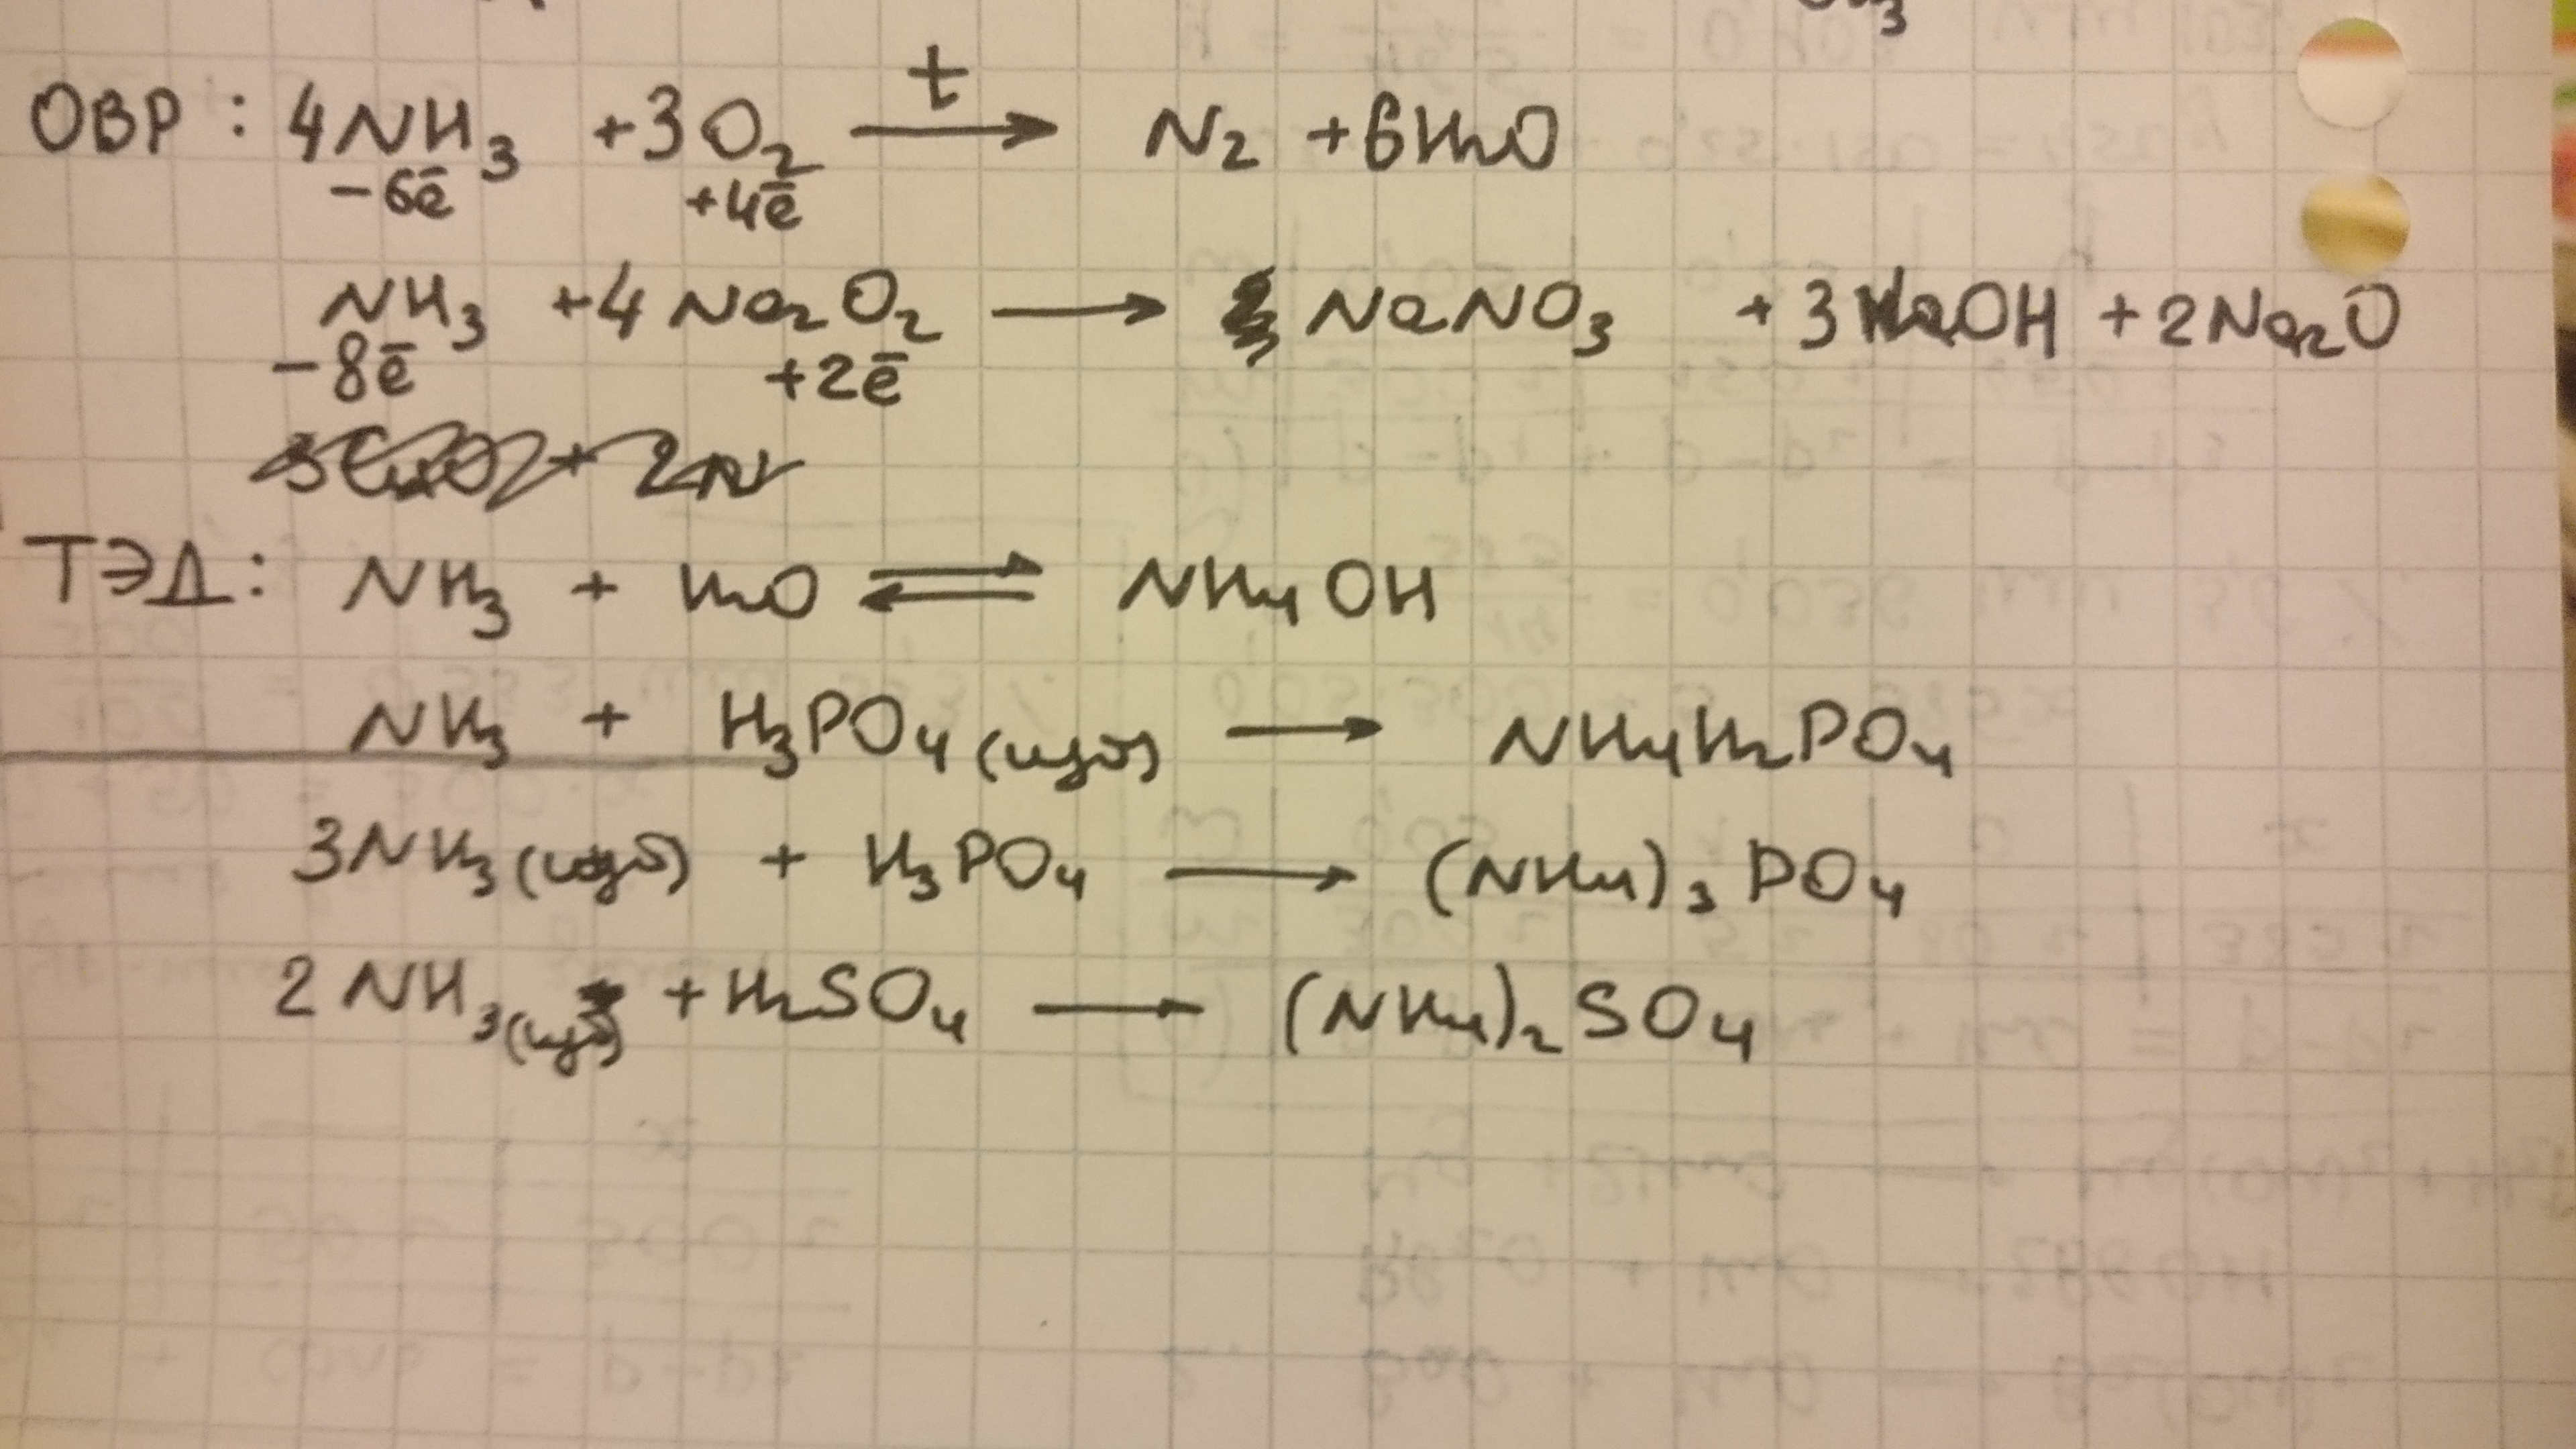 ОВР : 4NH3 + 3O2 t→ N2 + 6H2O
-6ē +4ē
NH3 + 4Na2O2 → NaNO3 + 3NaOH + 2Na2O
-8ē +2ē
ТЭД: NH3 + H2O ⇌ NH4OH
NH3 + H3PO4 (изб) → NH4H2PO4
3NH3 (изб) + H3PO4 → (NH4)3PO4
2NH3 (изб) + H2SO4 → (NH4)2SO4